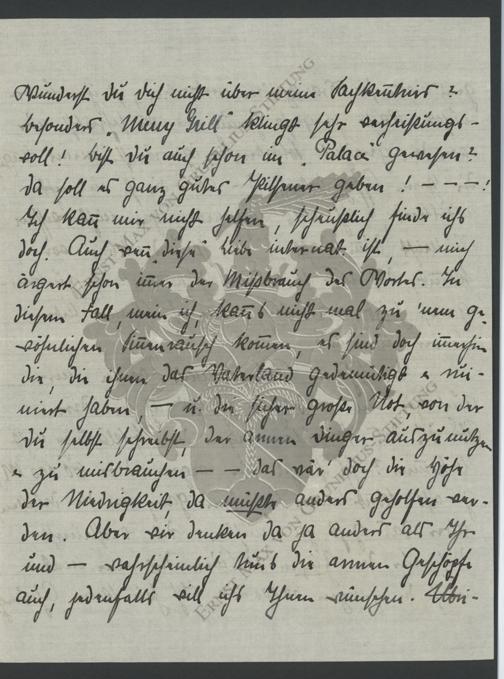 Wunderst du dich nicht über meine Sachkenntnis?
besonders „Meny Grill" klingt sehr verheißungs-
voll! bist Du auch schon im „Palace" gewesen?
da soll es ganz gutes Pilsener geben! – – –!
Ich kan̄ mir nicht helfen, scheußlich finde ichs
doch. Auch wen̄ „diese" Liebe international ist, – mich
ärgert schon im̄er der Mißbrauch des Wortes. In
diesem Fall, mein ich, kan̄s nicht mal zu 'nem ge-
wöhnlichen Sinnenrausch kom̄en, es sind doch im̄erhin
die, die ihnen das Vaterland gedemütigt u. rui-
niert haben, – u. die sicher große Not, von der
Du selbst schreibst, der armen Dinger auszunützen
u. zu misbrauchen – – das wär' doch die Höhe
der Niedrigkeit, da müßte anders geholfen wer-
den. Aber wir denken da ja anders als Ihr
und – wahrscheinlich tuns die armen Geschöpfe
auch, jedenfalls will ichs Ihnen wünschen. Übri-
ERNST VON STIFTUNG